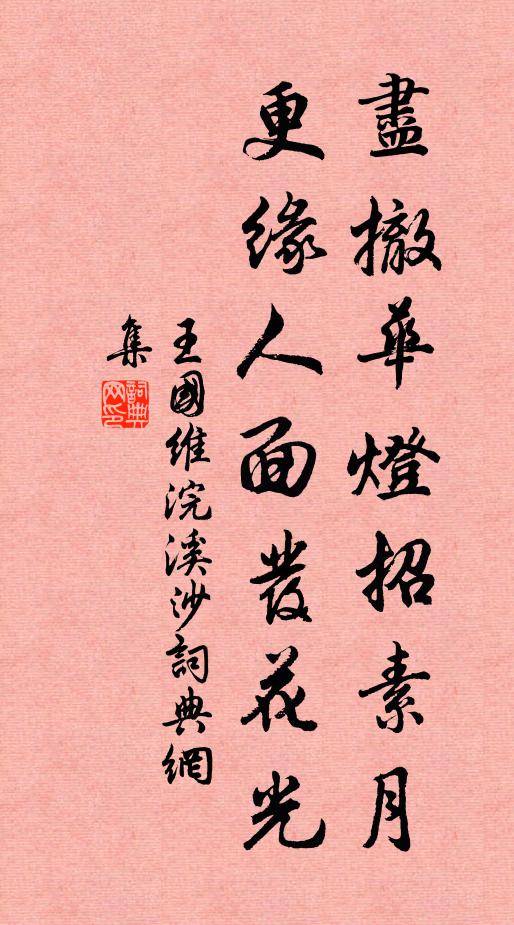 盡撤華燈招素月
更緣人面發花光
王國維浣溪沙詞典網
集
詞典網印